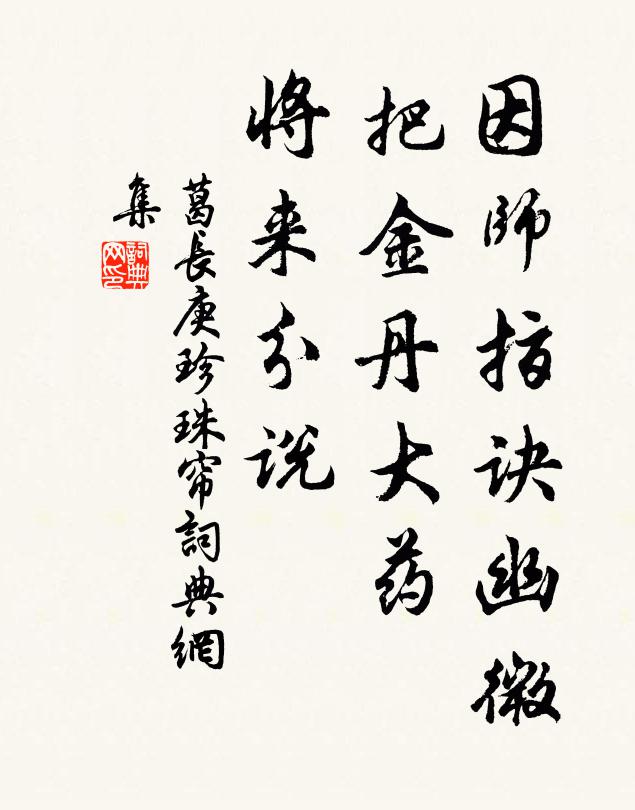 因師指訣幽微
把金丹大药
將来分说
葛長庚珍珠帘詞典網
集
詞典
网印